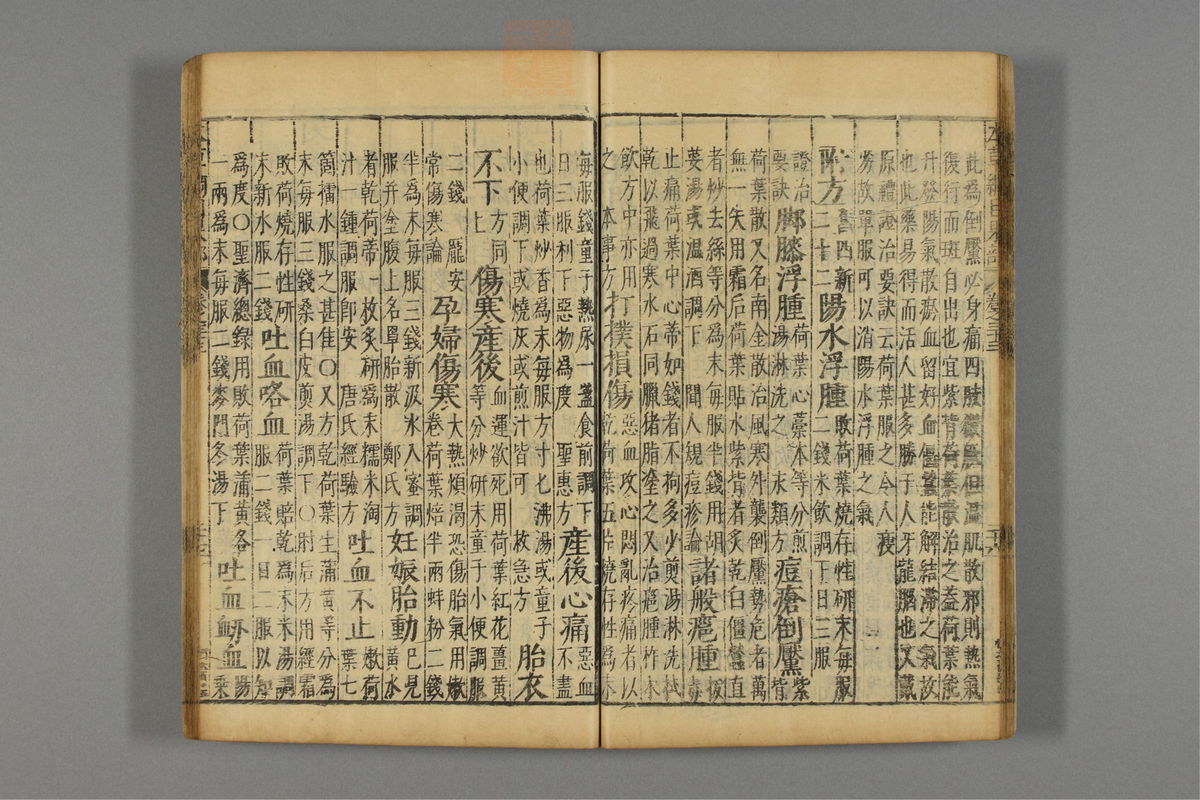 此為倒黶必身痛四肢微厥但溫肌散邪則熱氣
復行而斑自出也宜紫背荷葉散治之蓋荷葉能
升發陽氣散瘀血留好血僵蠶能解結滯之氣故
也此藥易得而活人甚多勝于人牙龍腦也又戴
原禮證治要訣云荷葉服之令人瘦
劣故單服可以消陽水浮腫之氣
附方舊四新二十二陽水浮腫敗荷葉燒存性研末每服二錢米飲調下日三服
證治要訣脚膝浮腫荷葉心藁本等分煎湯淋洗之 水類方痘瘡倒黶紫背
荷葉散又名南金散治風寒外襲倒黶勢危者萬
無一失用霜后荷葉貼水紫背者炙乾白僵蠶直
者炒去絲等分為末每服半錢用胡荽湯或溫酒調下 聞人規痘疹論諸般癰腫拔毒
止痛荷葉中心蒂如錢者不拘多少煎湯淋洗拭
乾以飛過寒水石同臘猪脂塗之又治癰腫柞木
飲方中亦用之 本事方打撲損傷惡血攻心悶亂疼痛者以乾荷葉五片燒存性為末
每服錢童子熱尿一盞食前調下
日三服利下惡物為度 聖惠方產後心痛惡血不盡
也荷葉炒香為末每服方寸匕沸湯或童子
小便調下或燒灰或煎汁皆可 救急方胎衣
不下方同上傷寒產後血運欲死用荷葉紅花薑黃等分炒研末童子小便調服
二錢 龐安常傷寒論孕婦傷寒大熱煩渴恐傷胎氣用嫩卷荷葉焙半兩蚌粉二錢
半為末每服三錢新汲水入蜜調
服并塗腹上名罩胎散 鄭氏方妊娠胎動已見黃水
者乾荷蒂一枚炙研為末糯米淘
汁一鍾調服即安 唐氏經驗方吐血不止嫩荷葉七
箇擂水服之甚佳○又方乾荷葉生蒲黃等分為
末每服三錢桑白皮煎湯調下○肘后方用經霜
敗荷燒存性研末新水服二錢吐血咯血荷葉焙乾為末米湯調服二錢一日二服以知
為度○聖濟總錄用敗荷葉蒲黃各
一兩為末每服二錢麥門冬湯下吐血衂血陽乘